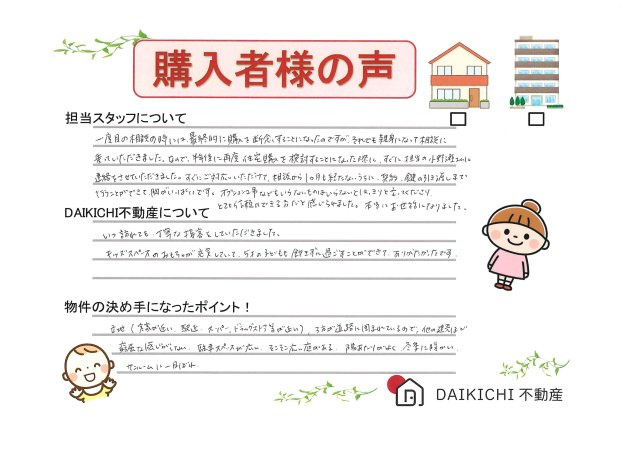 購入者様の声
担当スタッフについて
一度目の相談の時には、最終的に購入を断念することになったのですが、それでも親身になって相談に
乗っていただきました。なので、半年後に再度住宅購入を検討することになった際に、すぐに担当の小野遊さんに
連絡をさせていただきました。すぐにご対応いただけて、相談から1ヶ月も経たないうちに、契約、鍵の引き渡しまで
行うことができて、胸がいっぱいです。オプション工事などもいらないものはいらないとハッキリと言ってくださり、
とても信頼のできる方だと感じられました。本当にお世話になりました。
DAIKICHI不動産について
いつ訪れても、丁寧な接客をしていただけました。
キッズスペースのおもちゃが充実していて、5才の子どもも飽きずに過ごすことができて、ありがたかったです。
物件の決め手になったポイント！
立地（実家が近い、駅近、スーパー、ドラッグストア等が近い）、3方が道路に囲まれているので、他の建売ほど
窮屈な感じがしない、駐車スペースが広い、そこそこ広い庭がある、陽あたりがよく、冬季に暖かい
サンルームに一目ぼれ
DAIKICHI 不動産